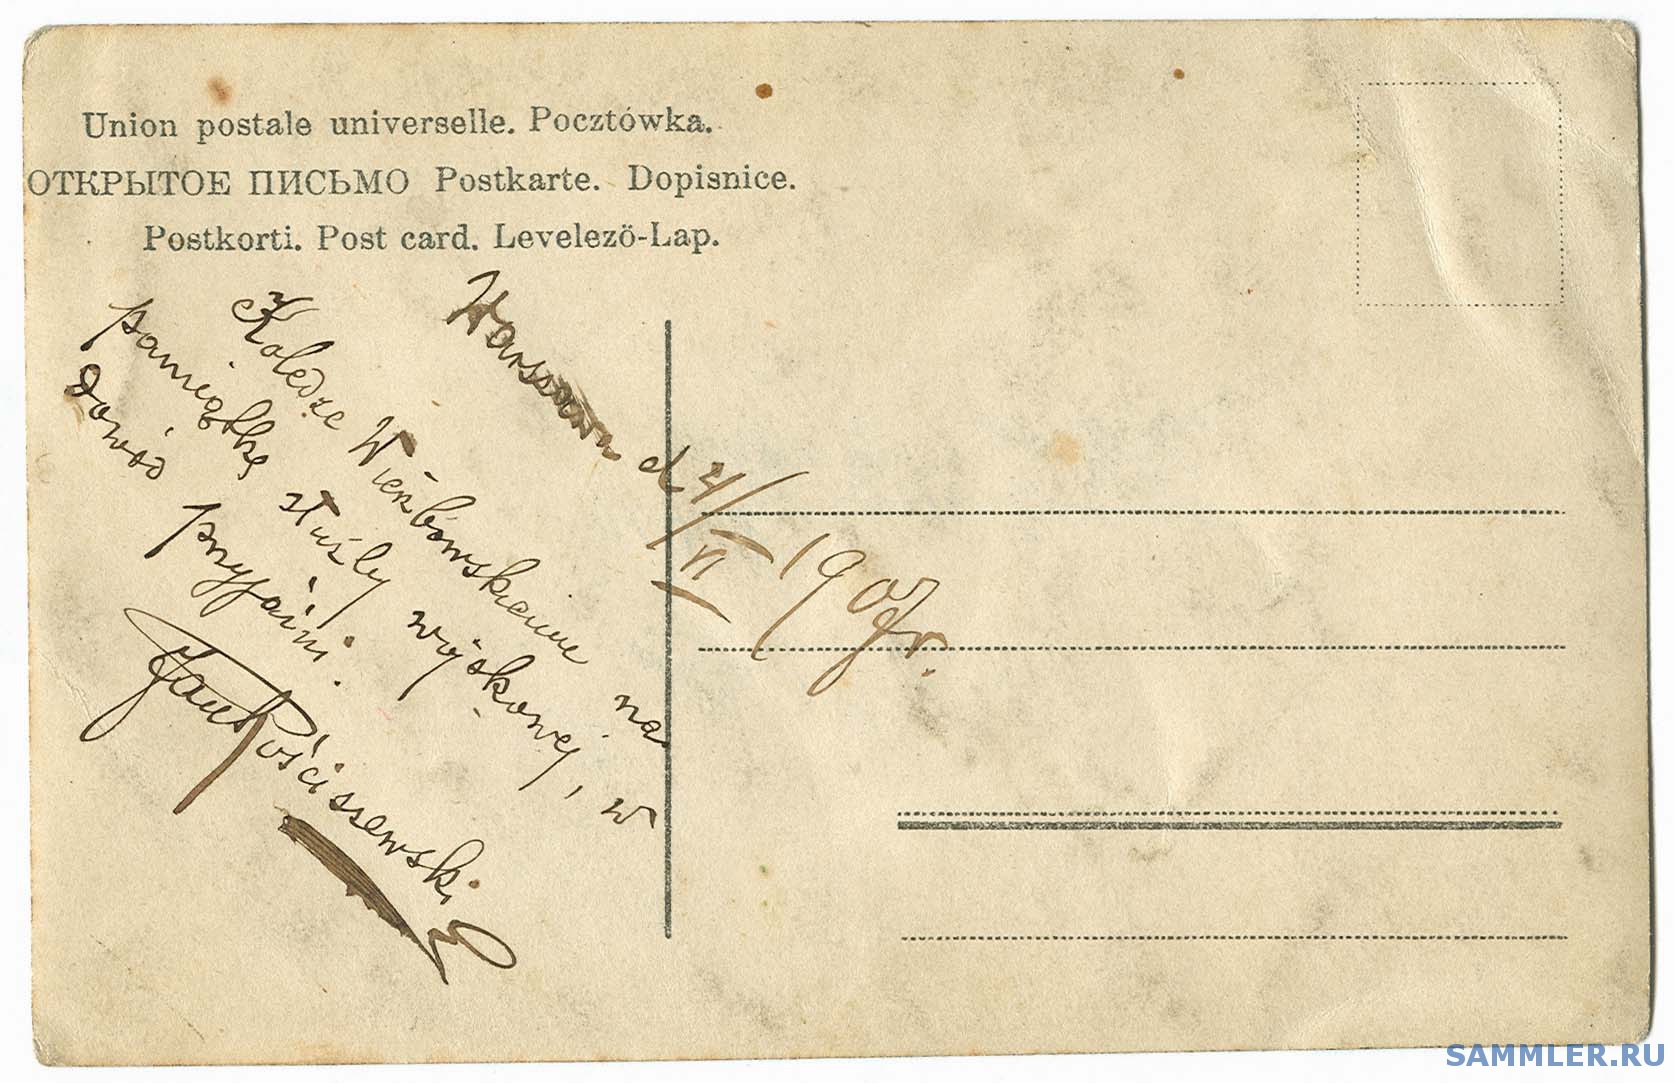 Union postale universelle. Pocztówka.
ОТКРЫТОЕ ПИСЬМО Postkarte. Dopisnice.
Postkorti. Post card. Levelezö-Lap.
Warszawa d 21/VI 1907r.
Koledze Wierzbowskiemu na
pamiątkę służby wojskowej, w
dowód przyjaźni.
Jan Kościszewski
SAMMLER.RU